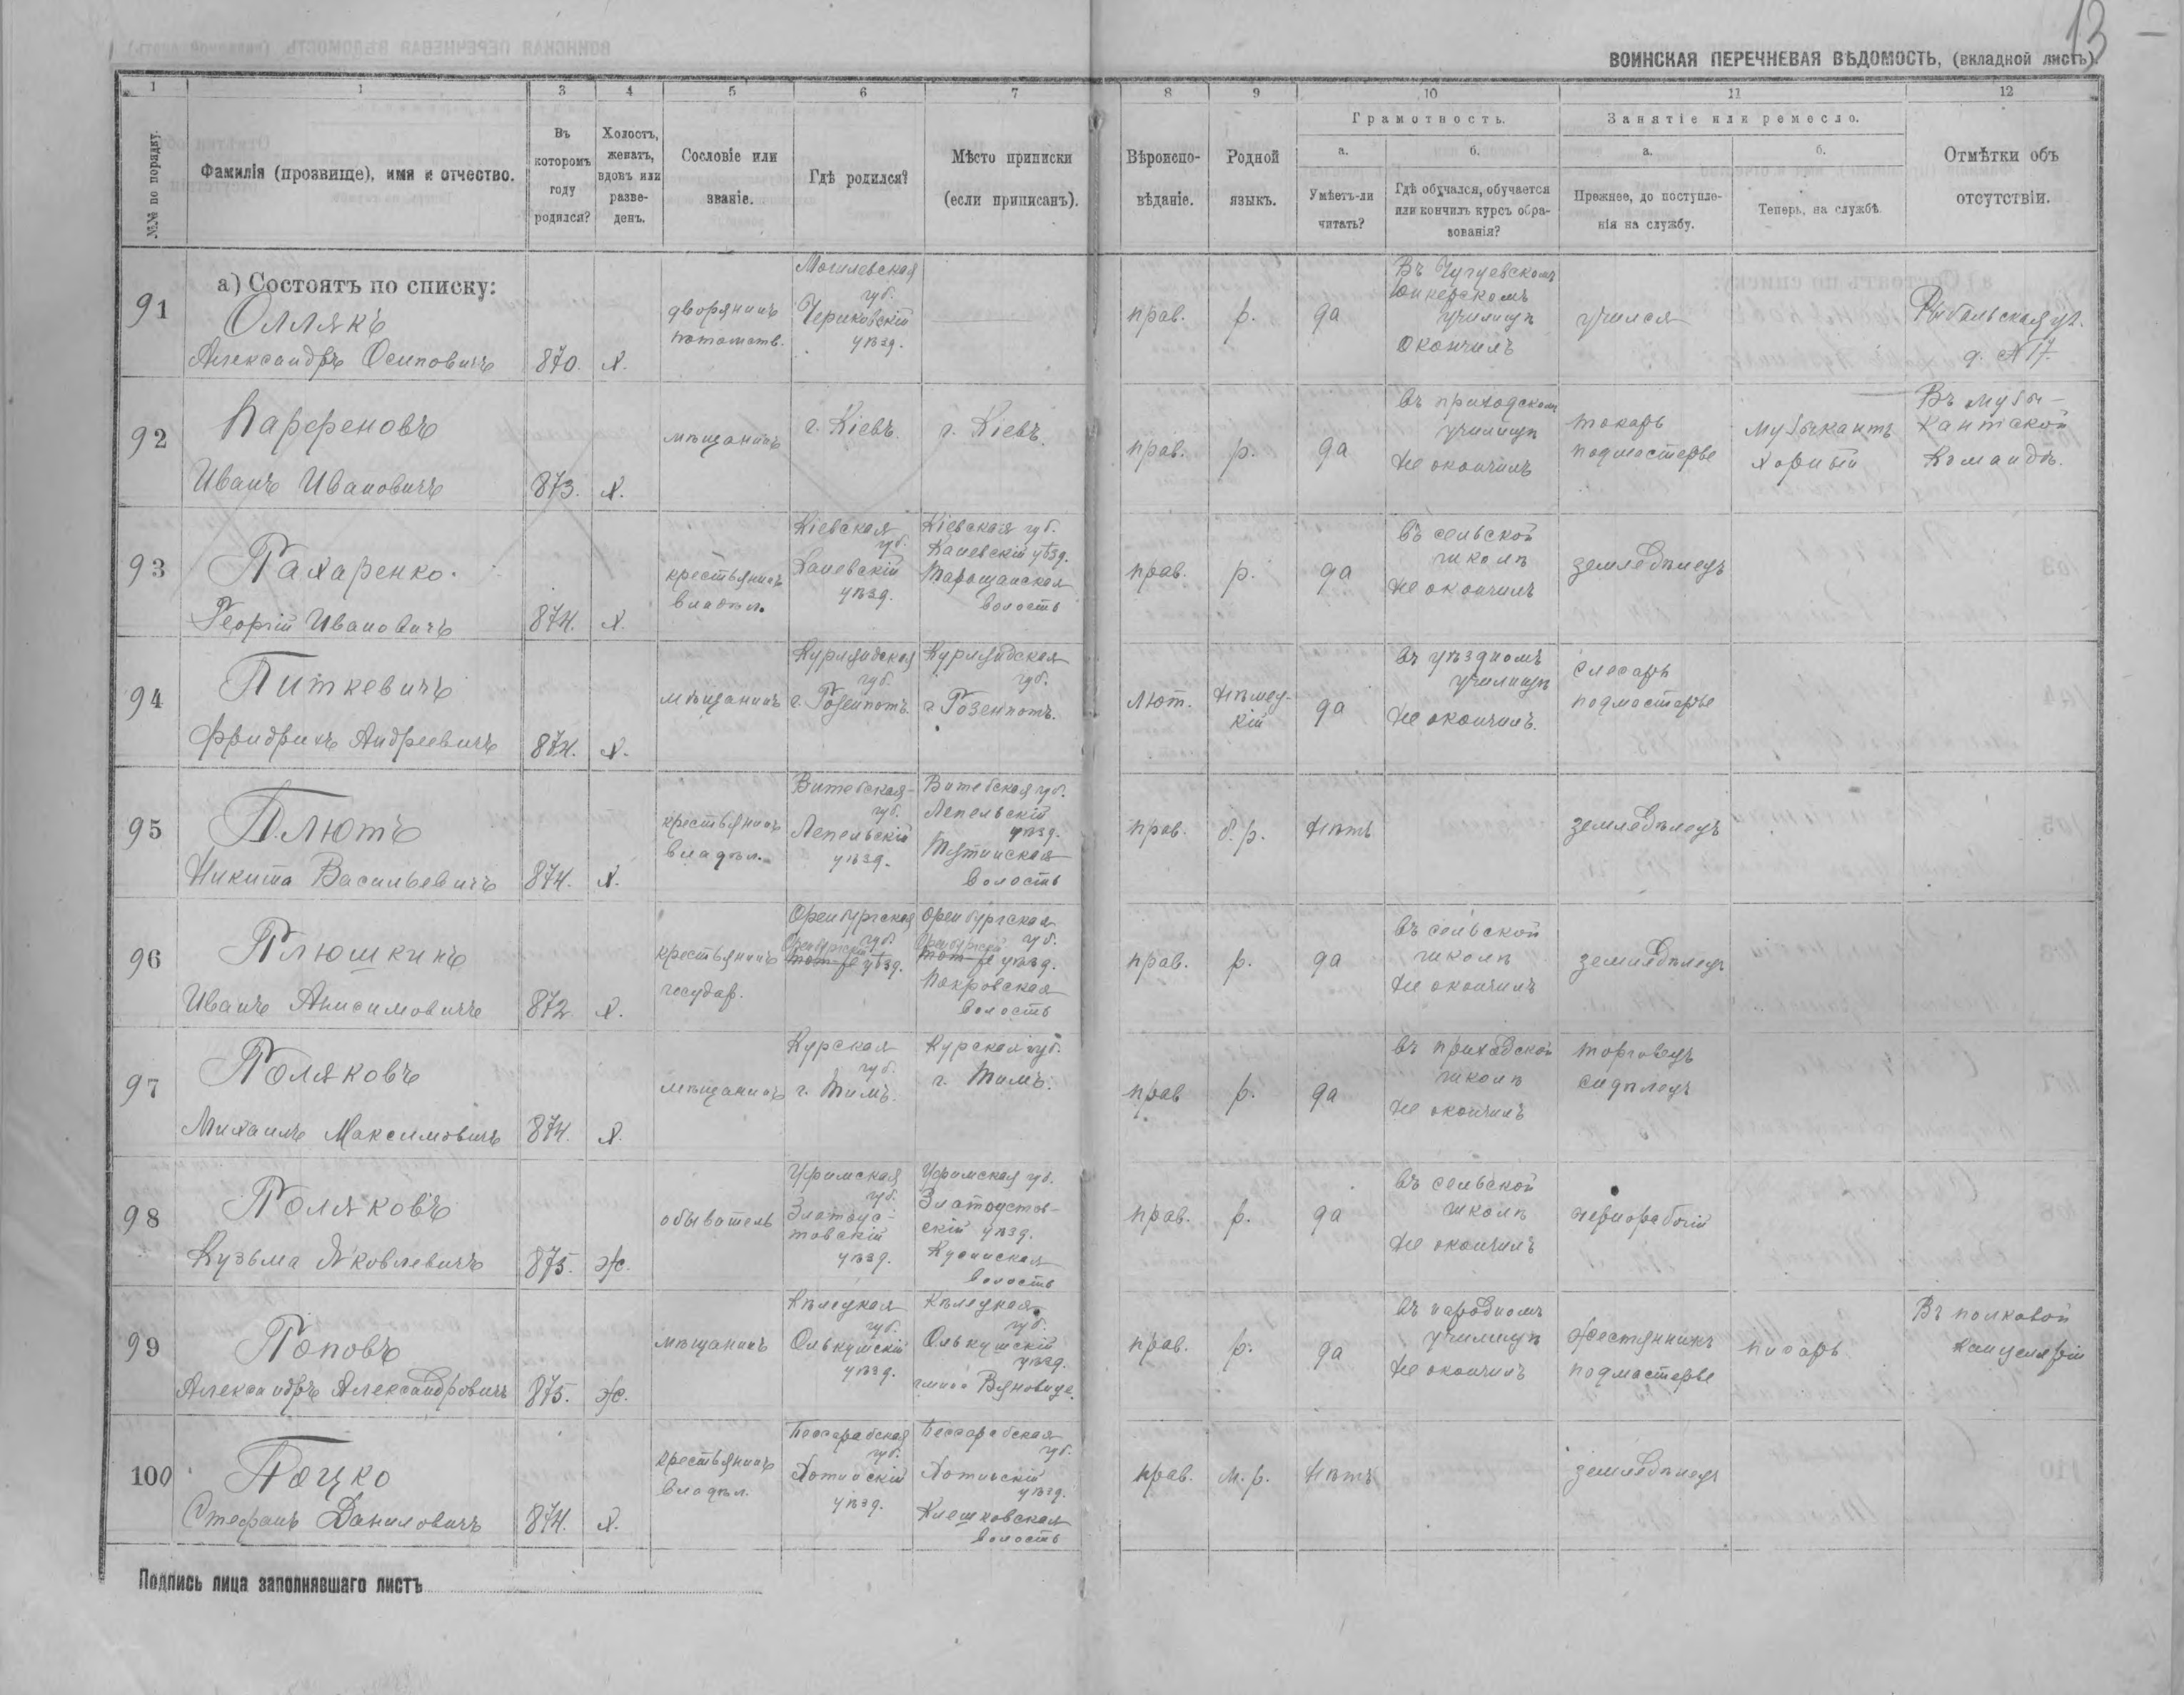 13
ВОИНСКАЯ ПЕРЕЧНЕВАЯ ВѢДОМОСТЬ, (вкладной листъ).
1 1 3 4 5 6 7 8 9 10 11 12
№№ по порядку.
Фамилія (прозвище), имя и отчество.
Въ которомъ году родился?
Холостъ, женатъ, вдовъ или разве-
денъ.
Сословіе или
званіе.
Гдѣ родился?
Мѣсто приписки
(если приписанъ).
Вѣроиспо-
вѣданіе.
Родной
языкъ.
Грамотность.
а.
Умѣетъ-ли
читать?
б.
Гдѣ обучался, обучается
или кончилъ курсъ обра-
зованія?
Занятіе или ремесло.
а.
Прежнее, до поступле-
нія на службу.
б.
Теперь, на службѣ.
Отмѣтки объ
отсутствіи.
а) Состоятъ по списку:
91
Оллякъ
Александръ Осиповичъ
870.
х.
дворянинъ
потомств.
Могилевская
губ.
Чериковскій
уѣзд.
прав.
р.
да
Въ Чугуевскомъ
юнкерскомъ
училищѣ
окончилъ
учился
Рыбальская ул.
д. № 17.
92
Парфеновъ
Иванъ Ивановичъ
873.
х.
мѣщанинъ
г. Кіевъ.
г. Кіевъ.
прав.
р.
да
въ приходскомъ
училищѣ
не окончилъ
токарь
подмастерье
музыкантъ
хорный
Въ музы-
кантской
командѣ.
93
Пахаренко.
Георгій Ивановичъ
874.
х.
крестьянинъ
владѣл.
Кіевская
губ.
Каневскій
уѣзд.
Кіевская губ.
Каневскій уѣзд.
Таращанская
волость
прав.
р.
да
въ сельской
школѣ
не окончилъ
земледѣлецъ
94
Питкевичъ
Фридрихъ Андреевичъ
874.
х.
мѣщанинъ
Курляндская
губ.
г. Гозенпотъ.
Курляндская
губ.
г. Гозенпотъ.
лют.
нѣмец-
кій
да
въ уѣздномъ
училищѣ
не окончилъ.
слесарь
подмастерье
95
Плютъ
Никита Васильевичъ
874.
х.
крестьянинъ
владѣл.
Витебская
губ.
Лепельскій
уѣзд.
Витебская губ.
Лепельскій
уѣзд.
волость
прав.
б. р.
нѣтъ
земледѣлецъ
96
Плюшкинъ
Иванъ Анисимовичъ
872
х.
крестьянинъ
государ.
Оренбургская
губ.
Оренбургскій
того-же уѣзд.
Оренбургская
губ.
Оренбургскій
того-же уѣзд.
Покровская
волость
прав.
р.
да
въ сельской
школѣ
не окончилъ
земледѣлецъ
97
Поляковъ
Михаилъ Максимовичъ
874.
х.
мѣщанинъ
Курская
губ.
г. Тимъ.
Курская губ.
г. Тимъ.
прав
р.
да
въ приходской
школѣ
не окончилъ
торговецъ
сидѣлецъ
98
Поляковъ
Кузьма Яковлевичъ
875.
ж.
обыватель
Уфимская
губ.
Златоус-
товскій
уѣзд.
Уфимская губ.
Златоустов-
скій уѣзд.
Кусинская
волость
прав.
р.
да
въ сельской
школѣ
не окончилъ
чернорабочій
99
Поповъ
Александръ Александровичъ
875.
ж.
мѣщанинъ
Кѣлецкая
губ.
Олькушскій
уѣзд.
Кѣлецкая
губ.
Олькушскій
уѣзд.
прав.
р.
да
въ народномъ
училищѣ
не окончилъ
жестянникъ
подмастерье
писарь
Въ полковой
канцеляріи
100
Поцко
Стефанъ Даниловичъ
874.
х.
крестьянинъ
владѣл.
Бессарабская
губ.
Хотинскій
уѣзд.
Бессарабская
губ.
Хотинскій
уѣзд.
Клешковская
волость
прав.
м. р.
нѣтъ
земледѣлецъ
Подпись лица заполнявшаго листъ